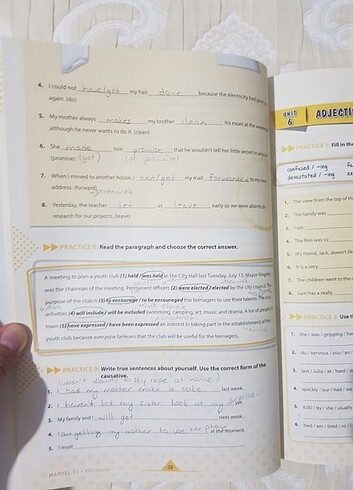 4. I could not have/get my hair done because the electricity had gone
again. (do)
5. My mother always makes my brother clean his room at the weekend
although he never wants to do it. (clean)
6. She made him promise that he wouldn't tell her little secret to
(promise) (get) (to promise)
7. When I moved to another house, I had/get my mail forwarded to my new
address. (forward)
8. Yesterday, the teacher let us leave early so we were able to
research for our projects. (leave)
PRACTICE 8: Read the paragraph and choose the correct answer.
A meeting to plan a youth club (1) held / was held in the City Hall last Tuesday, July 13. Mayor Kingsley
was the chairman of the meeting. Permanent officers (2) were elected / elected by the city council. The
purpose of the club is (3) to encourage / to be encouraged the teenagers to use their talents. The club
activities (4) will include / will be included swimming, camping, art, music, and drama. A lot of people in
town (5) have expressed / have been expressed an interest in taking part in the establishment of this
youth club because everyone believes that the club will be useful for the teenagers.
PRACTICE 9: Write true sentences about yourself. Use the correct form of the
causative.
(wasn't allowed to skip rope at home.)
1. I had my mother make a cake last week.
2. I haven't let my sister look at my
3. My family and I will get next week.
4. I am getting my mother to use her phone at the moment.
5. I must
MARVEL 11 • Workbook
32
UNIT
6
ADJECTI
PRACTICE 1: Fill in the
confused / -ing
devastated / -ing
1. The view from the top of th
2. The family was
3. I am
4. The film was so
5. My friend, Jack, doesn't lik
6. It is a very
7. The children went to the
8. Sam has a really
PRACTICE 2: Use t
1. she / was / gripping / hor
2. do / nervous / you / an
3. last / Julia / at / hard / st
4. quickly / our / had / we
5. 6.00 / by / she / usually
6. bed / am / tired / so / I